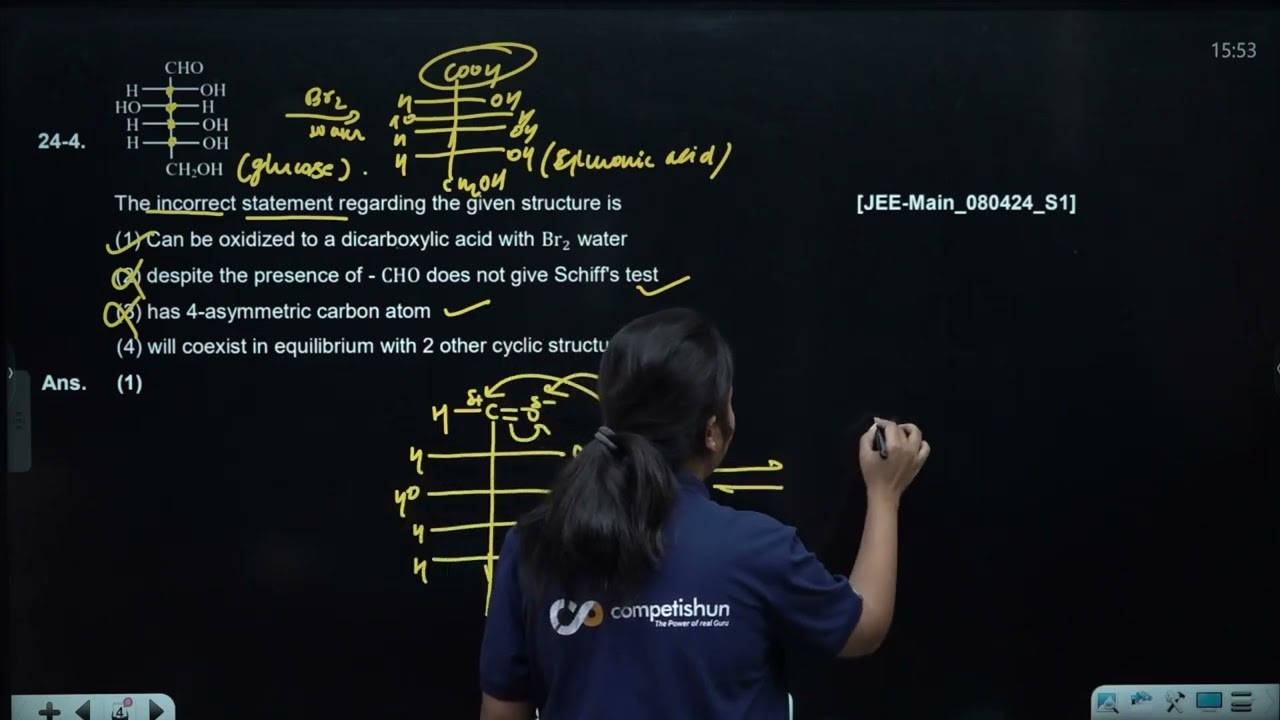 15:53
CHO
H OH
HO H
H OH
H OH
CH₂OH
24-4.
(glucose).
Br₂
water
COOH
H OH
HO H
H OH
H OH
CH₂OH
The incorrect statement regarding the given structure is
[JEE-Main_080424_S1]
(1) Can be oxidized to a dicarboxylic acid with Br₂ water
(2) despite the presence of - CHO does not give Schiff's test
(3) has 4-asymmetric carbon atom
(4) will coexist in equilibrium with 2 other cyclic
Ans. (1)
H C = O
δ+ δ-
H
HO
H
H
competishun
The Power of real Guru
4